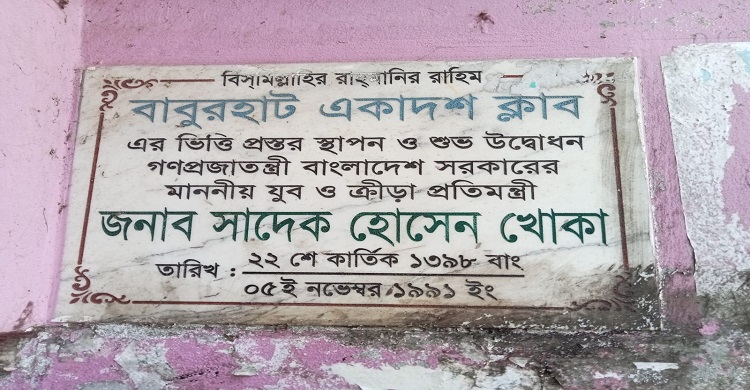 বিসমিল্লাহির রাহমানির রাহিম
বাবুরহাট একাদশ ক্লাব
এর ভিত্তি প্রস্তর স্থাপন ও শুভ উদ্বোধন
গণপ্রজাতন্ত্রী বাংলাদেশ সরকারের
মাননীয় যুব ও ক্রীড়া প্রতিমন্ত্রী
জনাব সাদেক হোসেন খোকা
তারিখ : ২২ শে কার্তিক ১৩৯৮ বাং
০৫ই নভেম্বর ১৯৯১ ইং